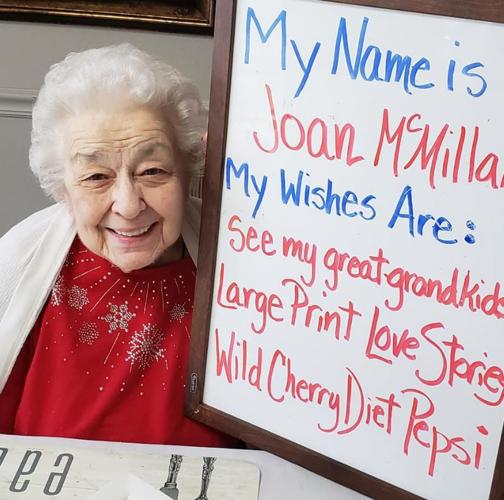 My Name is
Joan McMilla
My Wishes Are:
See my great-grandkids
Large Print Love Stories
Wild Cherry Diet Pepsi